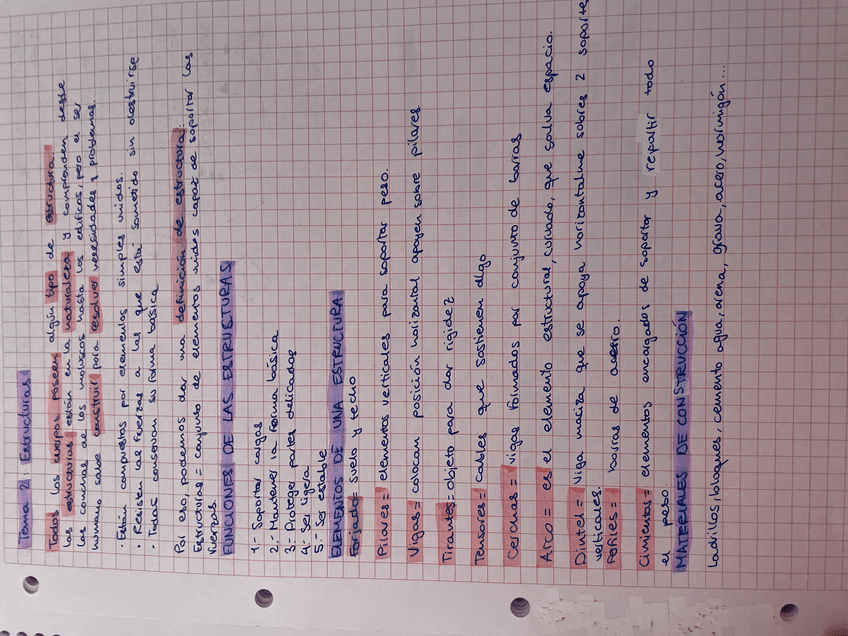 Tema 2: Estructuras
Todos los cuerpos poseen algún tipo de estructura.
Las estructuras están en la naturaleza y comprenden desde
las conchas de los moluscos hasta los edificios, pero el ser
humano sabe construir para resolver necesidades y problemas.
· Están compuestas por elementos simples unidos.
· Resisten las fuerzas a las que está sometido sin destruirse
· Todas conservan su forma básica
Por eso, podemos dar una definición de estructura:
Estructuras = conjunto de elementos unidos capaz de soportar las
fuerzas.
FUNCIONES DE LAS ESTRUCTURAS
1.- Soportar cargas
2.- Mantener la forma básica
3.- Proteger partes delicadas
4.- Ser ligera
5.- Ser estable
ELEMENTOS DE UNA ESTRUCTURA
Forjado = suelo y techo
Pilares = elementos verticales para soportar peso.
Vigas = colocan posición horizontal apoyen sobre pilares
Tirantes = objeto para dar rigidez
Tensores = Cables que sostienen algo
Cerchas = Vigas formados por conjunto de barras
Arco = es el elemento estructural, curvado, que salva espacio.
Dintel = Viga maciza que se apoya horizontalme sobres 2 soporte
verticales.
Perfiles = barras de acero.
Cimientos = elementos encargados de soportar y repartir todo
el peso.
MATERIALES DE CONSTRUCCIÓN
Ladrillos, bloques, cemento agua, arena, grava, acero, hormigón...